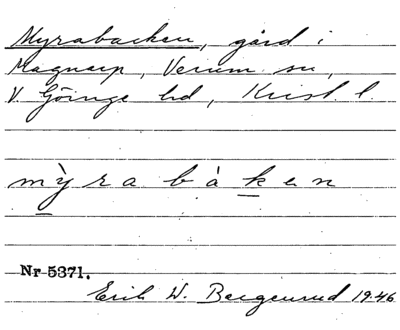 Myrabacken, gård i
Magnarp, Verum sn,
V. Göinge hd, Krist. l.
mỳrabàken
Nr 5371.
Erik W. Bergenrud 1946